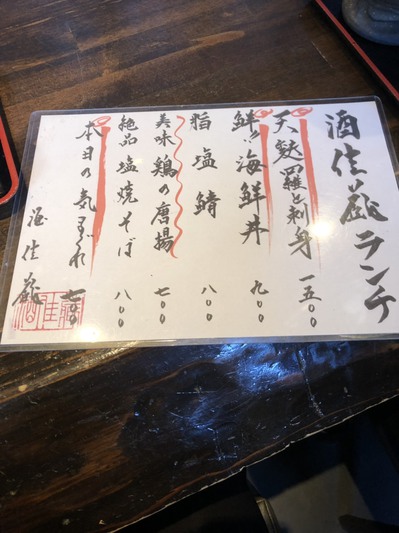 酒佳蔵ランチ
天麩羅と刺身 一五〇〇
鮮々海鮮丼 九〇〇
粕塩鯖 八〇〇
美味鶏の唐揚 七〇〇
絶品塩焼そば 八〇〇
本日の気まぐれ 七〇〇
酒佳蔵